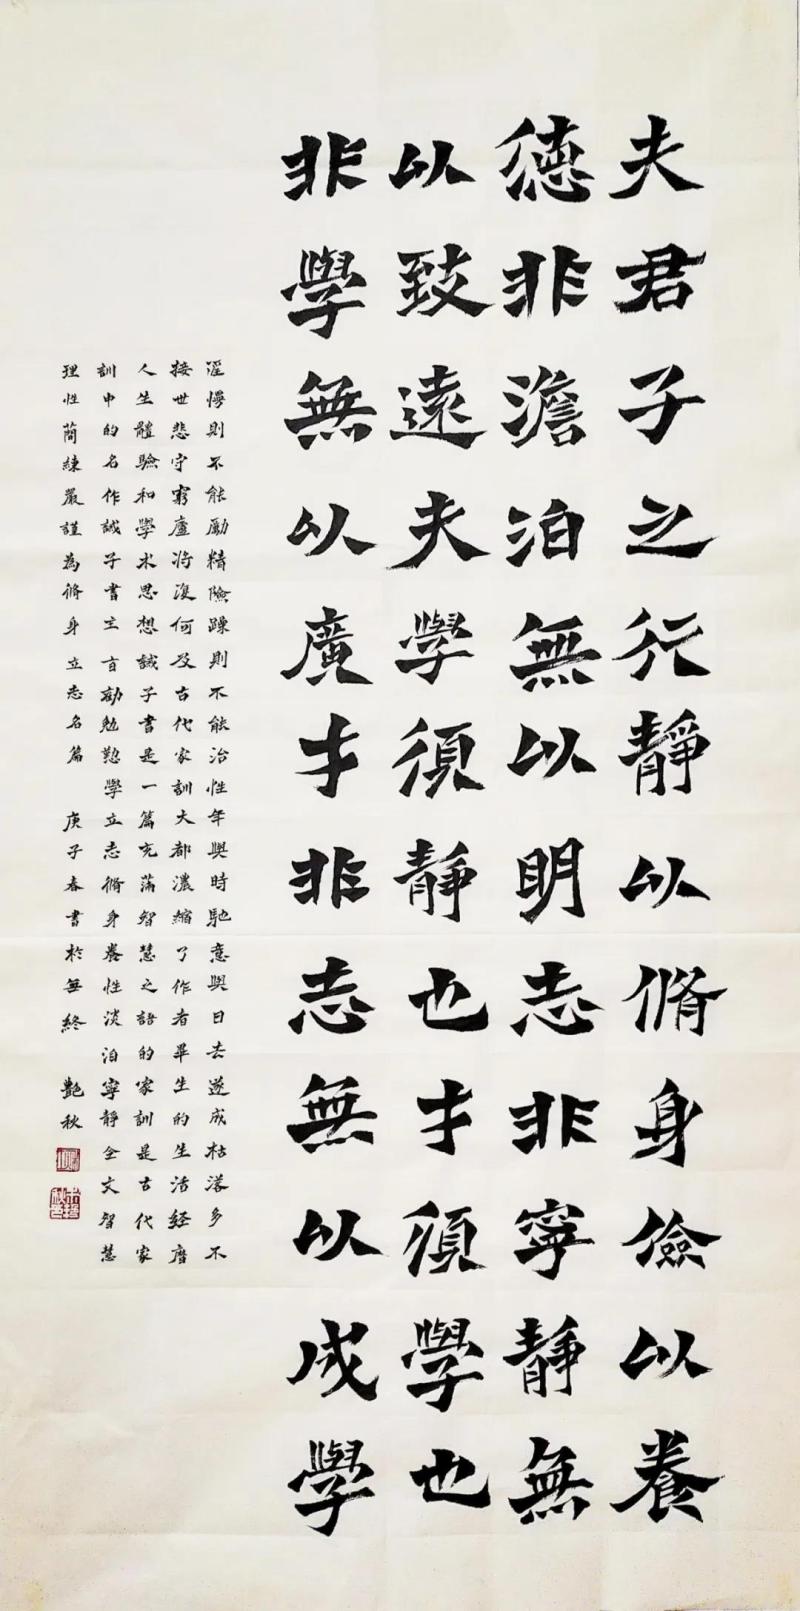 夫君子之行靜以脩身儉以養
德非澹泊無以明志非寧靜無
以致遠夫學須靜也才須學也
非學無以廣才非志無以成學
淫慢則不能勵精險躁則不能治性年與時馳意與日去遂成枯落多不
接世悲守窮廬將復何及古代家訓大都濃縮了作者畢生的生活经磨
人生體驗和學术思想誡子書是一篇充滿智慧之語的家訓是古代家
訓中的名作誡子書主旨勸勉懃學立志脩身養性淡泊寧靜全文智慧
理性簡練嚴謹為脩身立志名篇 庚子春書於無終 艷秋